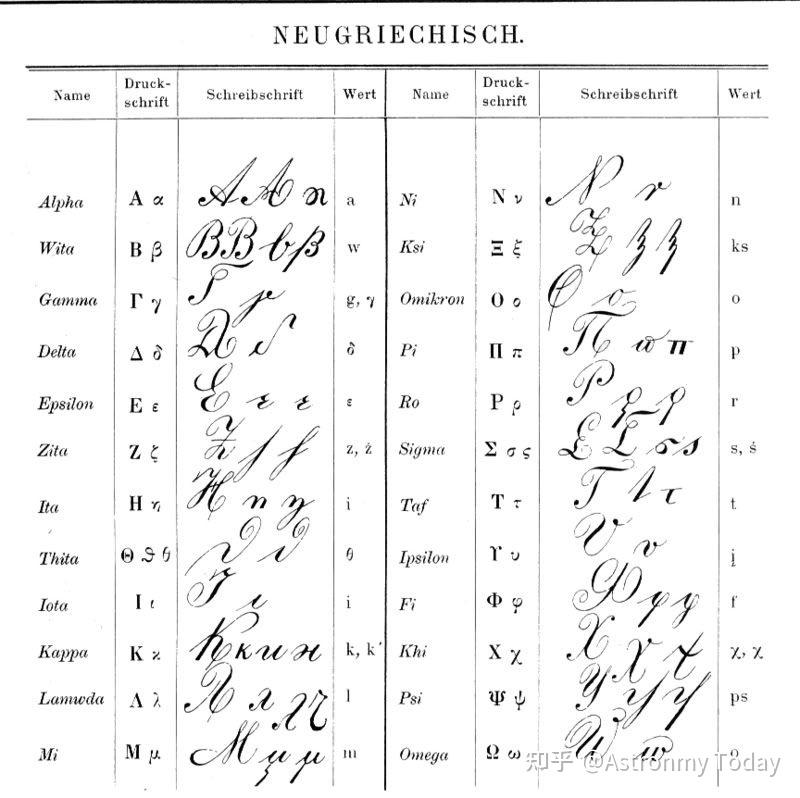 NEUGRIECHISCH.
Name Druck-schrift Schreibschrift Wert Name Druck-schrift Schreibschrift Wert
Alpha Α α a Ni Ν ν n
Wita Β β w Ksi Ξ ξ ks
Gamma Γ γ g, γ Omikron Ο ο o
Delta Δ δ δ Pi Π π p
Epsilon Ε ε ε Ro Ρ ρ r
Zita Ζ ζ z, ż Sigma Σ σ ς s, ś
Ita Η η i Taf Τ τ t
Thita Θ ϑ θ θ Ipsilon ϒ υ į
Iota Ι ι i Fi Φ φ f
Kappa Κ ϰ k, k´ Khi Χ χ χ, χ
Lamwda Λ λ l Psi Ψ ψ ps
Mi Μ μ m Omega Ω ω o
知乎 @Astronmy Today